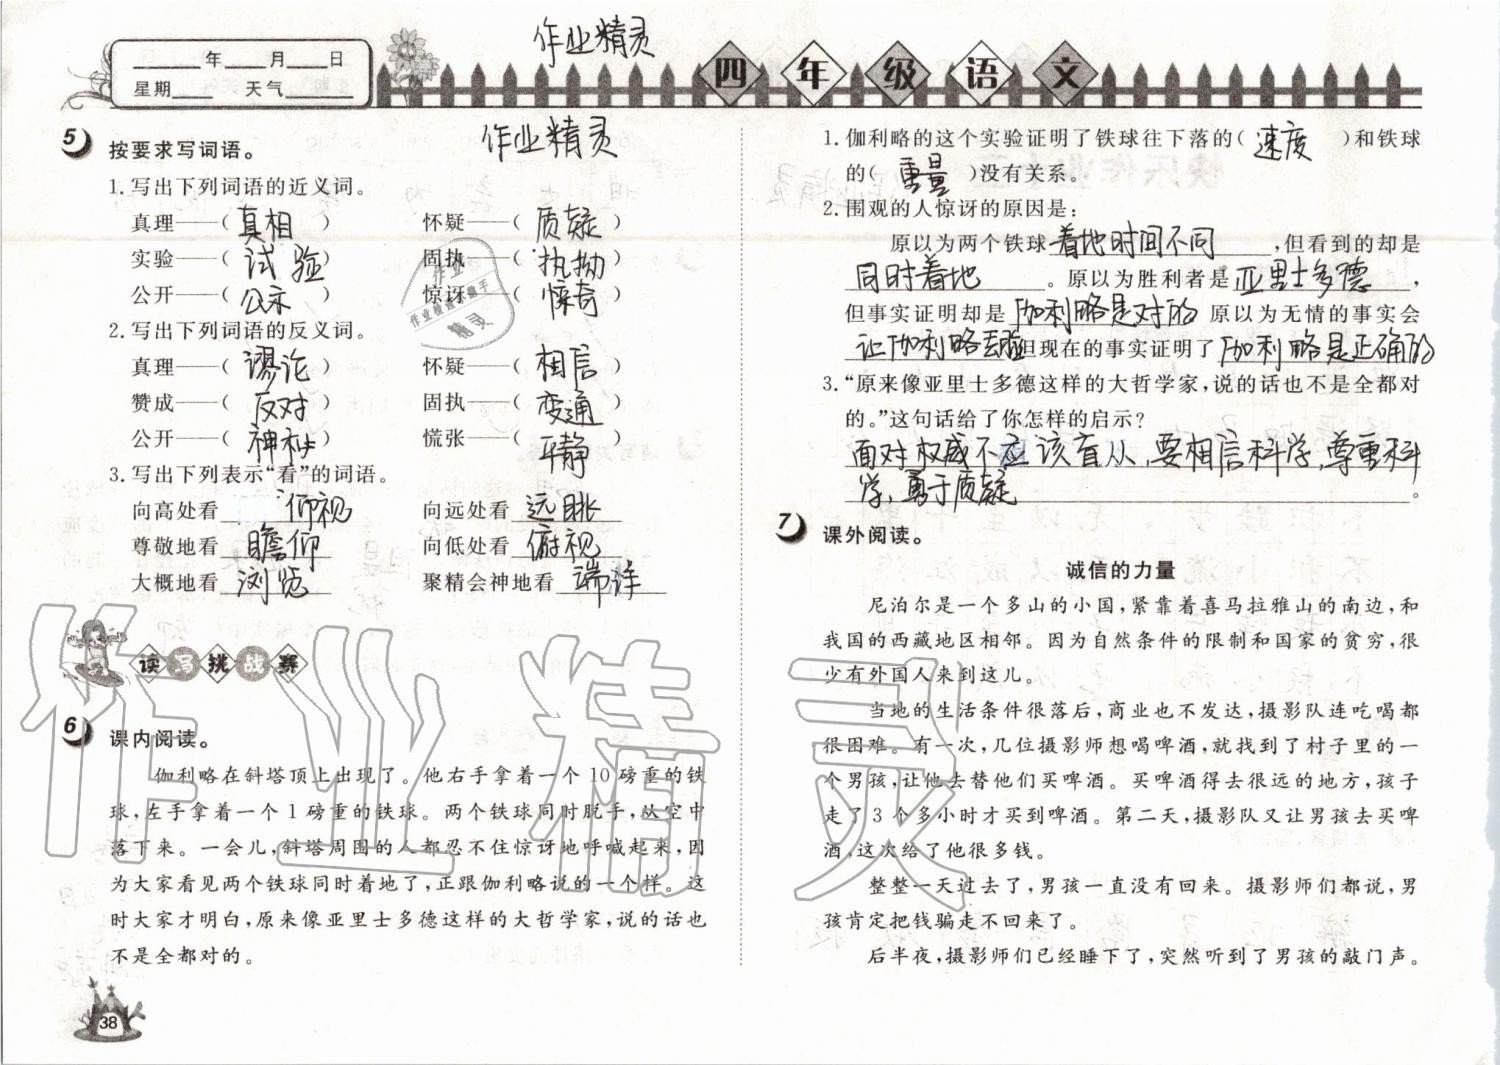 ____年____月____日
星期____ 天气____
作业精灵
四年级语文
5 按要求写词语。
作业精灵
1.写出下列词语的近义词。
真理——( 真相 ) 怀疑——( 质疑 )
实验——( 试验 ) 固执——( 执拗 )
公开——( 公示 ) 惊讶——( 惊奇 )
2.写出下列词语的反义词。
真理——( 谬论 ) 怀疑——( 相信 )
赞成——( 反对 ) 固执——( 变通 )
公开——( 神秘 ) 慌张——( 平静 )
3.写出下列表示“看”的词语。
向高处看 仰视 向远处看 远眺
尊敬地看 瞻仰 向低处看 俯视
大概地看 浏览 聚精会神地看 端详
读写挑战赛
6 课内阅读。
伽利略在斜塔顶上出现了。他右手拿着一个 10 磅重的铁
球,左手拿着一个 1 磅重的铁球。两个铁球同时脱手,从空中
落下来。一会儿,斜塔周围的人都忍不住惊讶地呼喊起来,因
为大家看见两个铁球同时着地了,正跟伽利略说的一个样。这
时大家才明白,原来像亚里士多德这样的大哲学家,说的话也
不是全都对的。
38
1.伽利略的这个实验证明了铁球往下落的( 速度 )和铁球
的( 重量 )没有关系。
2.围观的人惊讶的原因是:
原以为两个铁球 着地时间不同 ,但看到的却是
同时着地 。原以为胜利者是 亚里士多德 ,
但事实证明却是 伽利略是对的 原以为无情的事实会
让伽利略丢脸 但现在的事实证明了 伽利略是正确的
3.“原来像亚里士多德这样的大哲学家,说的话也不是全都对
的。”这句话给了你怎样的启示?
面对权威不应该盲从,要相信科学,尊重科
学,勇于质疑 。
7 课外阅读。
诚信的力量
尼泊尔是一个多山的小国,紧靠着喜马拉雅山的南边,和
我国的西藏地区相邻。因为自然条件的限制和国家的贫穷,很
少有外国人来到这儿。
当地的生活条件很落后,商业也不发达,摄影队连吃喝都
很困难。有一次,几位摄影师想喝啤酒,就找到了村子里的一
个男孩,让他去替他们买啤酒。买啤酒得去很远的地方,孩子
走了 3 个多小时才买到啤酒。第二天,摄影队又让男孩去买啤
酒,这次给了他很多钱。
整整一天过去了,男孩一直没有回来。摄影师们都说,男
孩肯定把钱骗走不回来了。
后半夜,摄影师们已经睡下了,突然听到了男孩的敲门声。
作业精灵